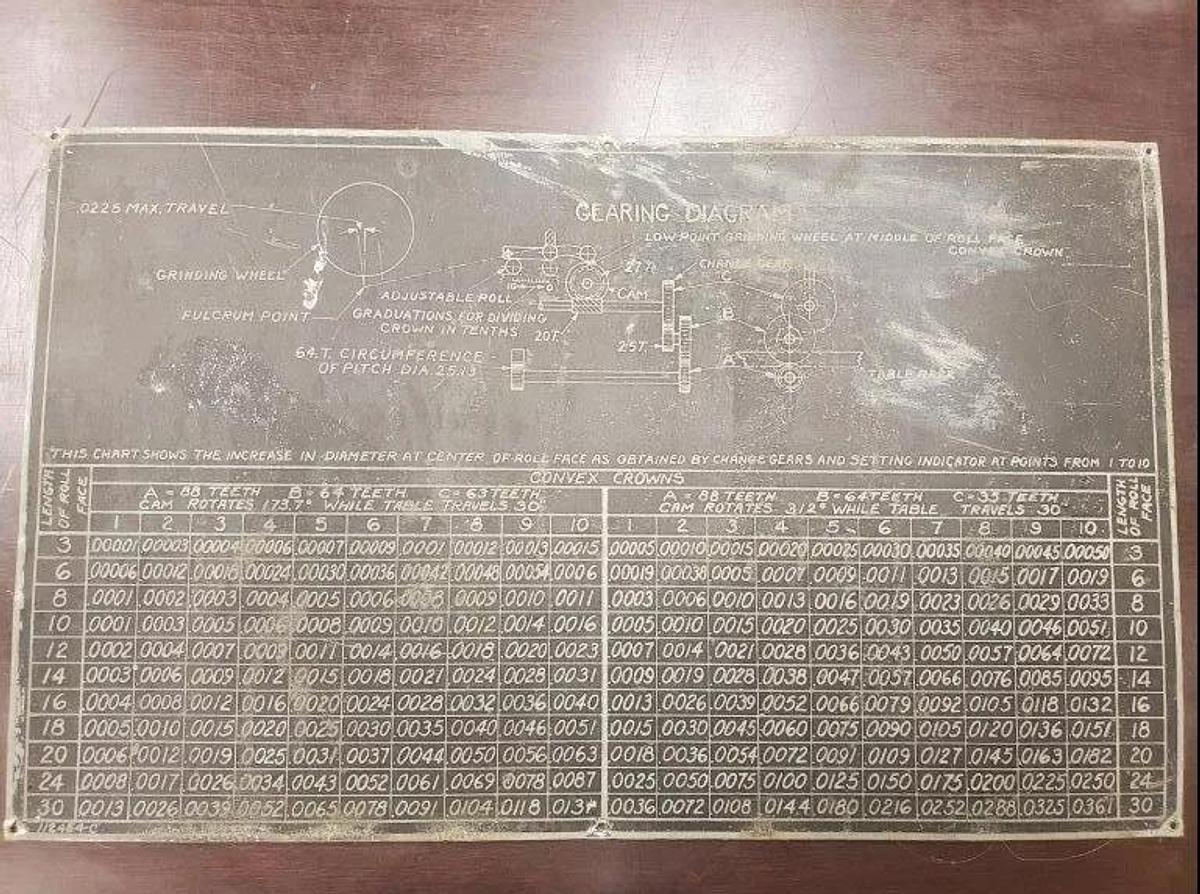 .0225 MAX. TRAVEL
GEARING DIAGRAM
LOW POINT GRINDING WHEEL AT MIDDLE OF ROLL FACE
CONVEX CROWN
GRINDING WHEEL
27 T.
CHANGE GEAR
C
CAM
ADJUSTABLE ROLL
GRADUATIONS FOR DIVIDING
CROWN IN TENTHS
FULCRUM POINT
20T.
B
25T.
64.T. CIRCUMFERENCE
OF PITCH DIA. 25.13
A
TABLE RACK
THIS CHART SHOWS THE INCREASE IN DIAMETER AT CENTER OF ROLL FACE AS OBTAINED BY CHANGE GEARS AND SETTING INDICATOR AT POINTS FROM 1 TO 10
LENGTH OF ROLL FACE CONVEX CROWNS LENGTH OF ROLL FACE
A = 88 TEETH B = 64 TEETH C = 63 TEETH A = 88 TEETH B = 64 TEETH C = 33 TEETH
CAM ROTATES 173.7° WHILE TABLE TRAVELS 30" CAM ROTATES 312° WHILE TABLE TRAVELS 30"
1 2 3 4 5 6 7 8 9 10 1 2 3 4 5 6 7 8 9 10
3 .00001 .00003 .00004 .00006 .00007 .00009 .0001 .00012 .00013 .00015 .00005 .00010 .00015 .00020 .00025 .00030 .00035 .00040 .00045 .00050 3
6 .00006 .00012 .00018 .00024 .00030 .00036 .00042 .00048 .00054 .0006 .00019 .00038 .0005 .0007 .0009 .0011 .0013 .0015 .0017 .0019 6
8 .0001 .0002 .0003 .0004 .0005 .0006 .0008 .0009 .0010 .0011 .0003 .0006 .0010 .0013 .0016 .0019 .0023 .0026 .0029 .0033 8
10 .0001 .0003 .0005 .0006 .0008 .0009 .0010 .0012 .0014 .0016 .0005 .0010 .0015 .0020 .0025 .0030 .0035 .0040 .0046 .0051 10
12 .0002 .0004 .0007 .0009 .0011 .0014 .0016 .0018 .0020 .0023 .0007 .0014 .0021 .0028 .0036 .0043 .0050 .0057 .0064 .0072 12
14 .0003 .0006 .0009 .0012 .0015 .0018 .0021 .0024 .0028 .0031 .0009 .0019 .0028 .0038 .0047 .0057 .0066 .0076 .0085 .0095 14
16 .0004 .0008 .0012 .0016 .0020 .0024 .0028 .0032 .0036 .0040 .0013 .0026 .0039 .0052 .0066 .0079 .0092 .0105 .0118 .0132 16
18 .0005 .0010 .0015 .0020 .0025 .0030 .0035 .0040 .0046 .0051 .0015 .0030 .0045 .0060 .0075 .0090 .0105 .0120 .0136 .0151 18
20 .0006 .0012 .0019 .0025 .0031 .0037 .0044 .0050 .0056 .0063 .0018 .0036 .0054 .0072 .0091 .0109 .0127 .0145 .0163 .0182 20
24 .0008 .0017 .0026 .0034 .0043 .0052 .0061 .0069 .0078 .0087 .0025 .0050 .0075 .0100 .0125 .0150 .0175 .0200 .0225 .0250 24
30 .0013 .0026 .0039 .0052 .0065 .0078 .0091 .0104 .0118 .0036 .0072 .0108 .0144 .0180 .0216 .0252 .0288 .0325 .0361 30